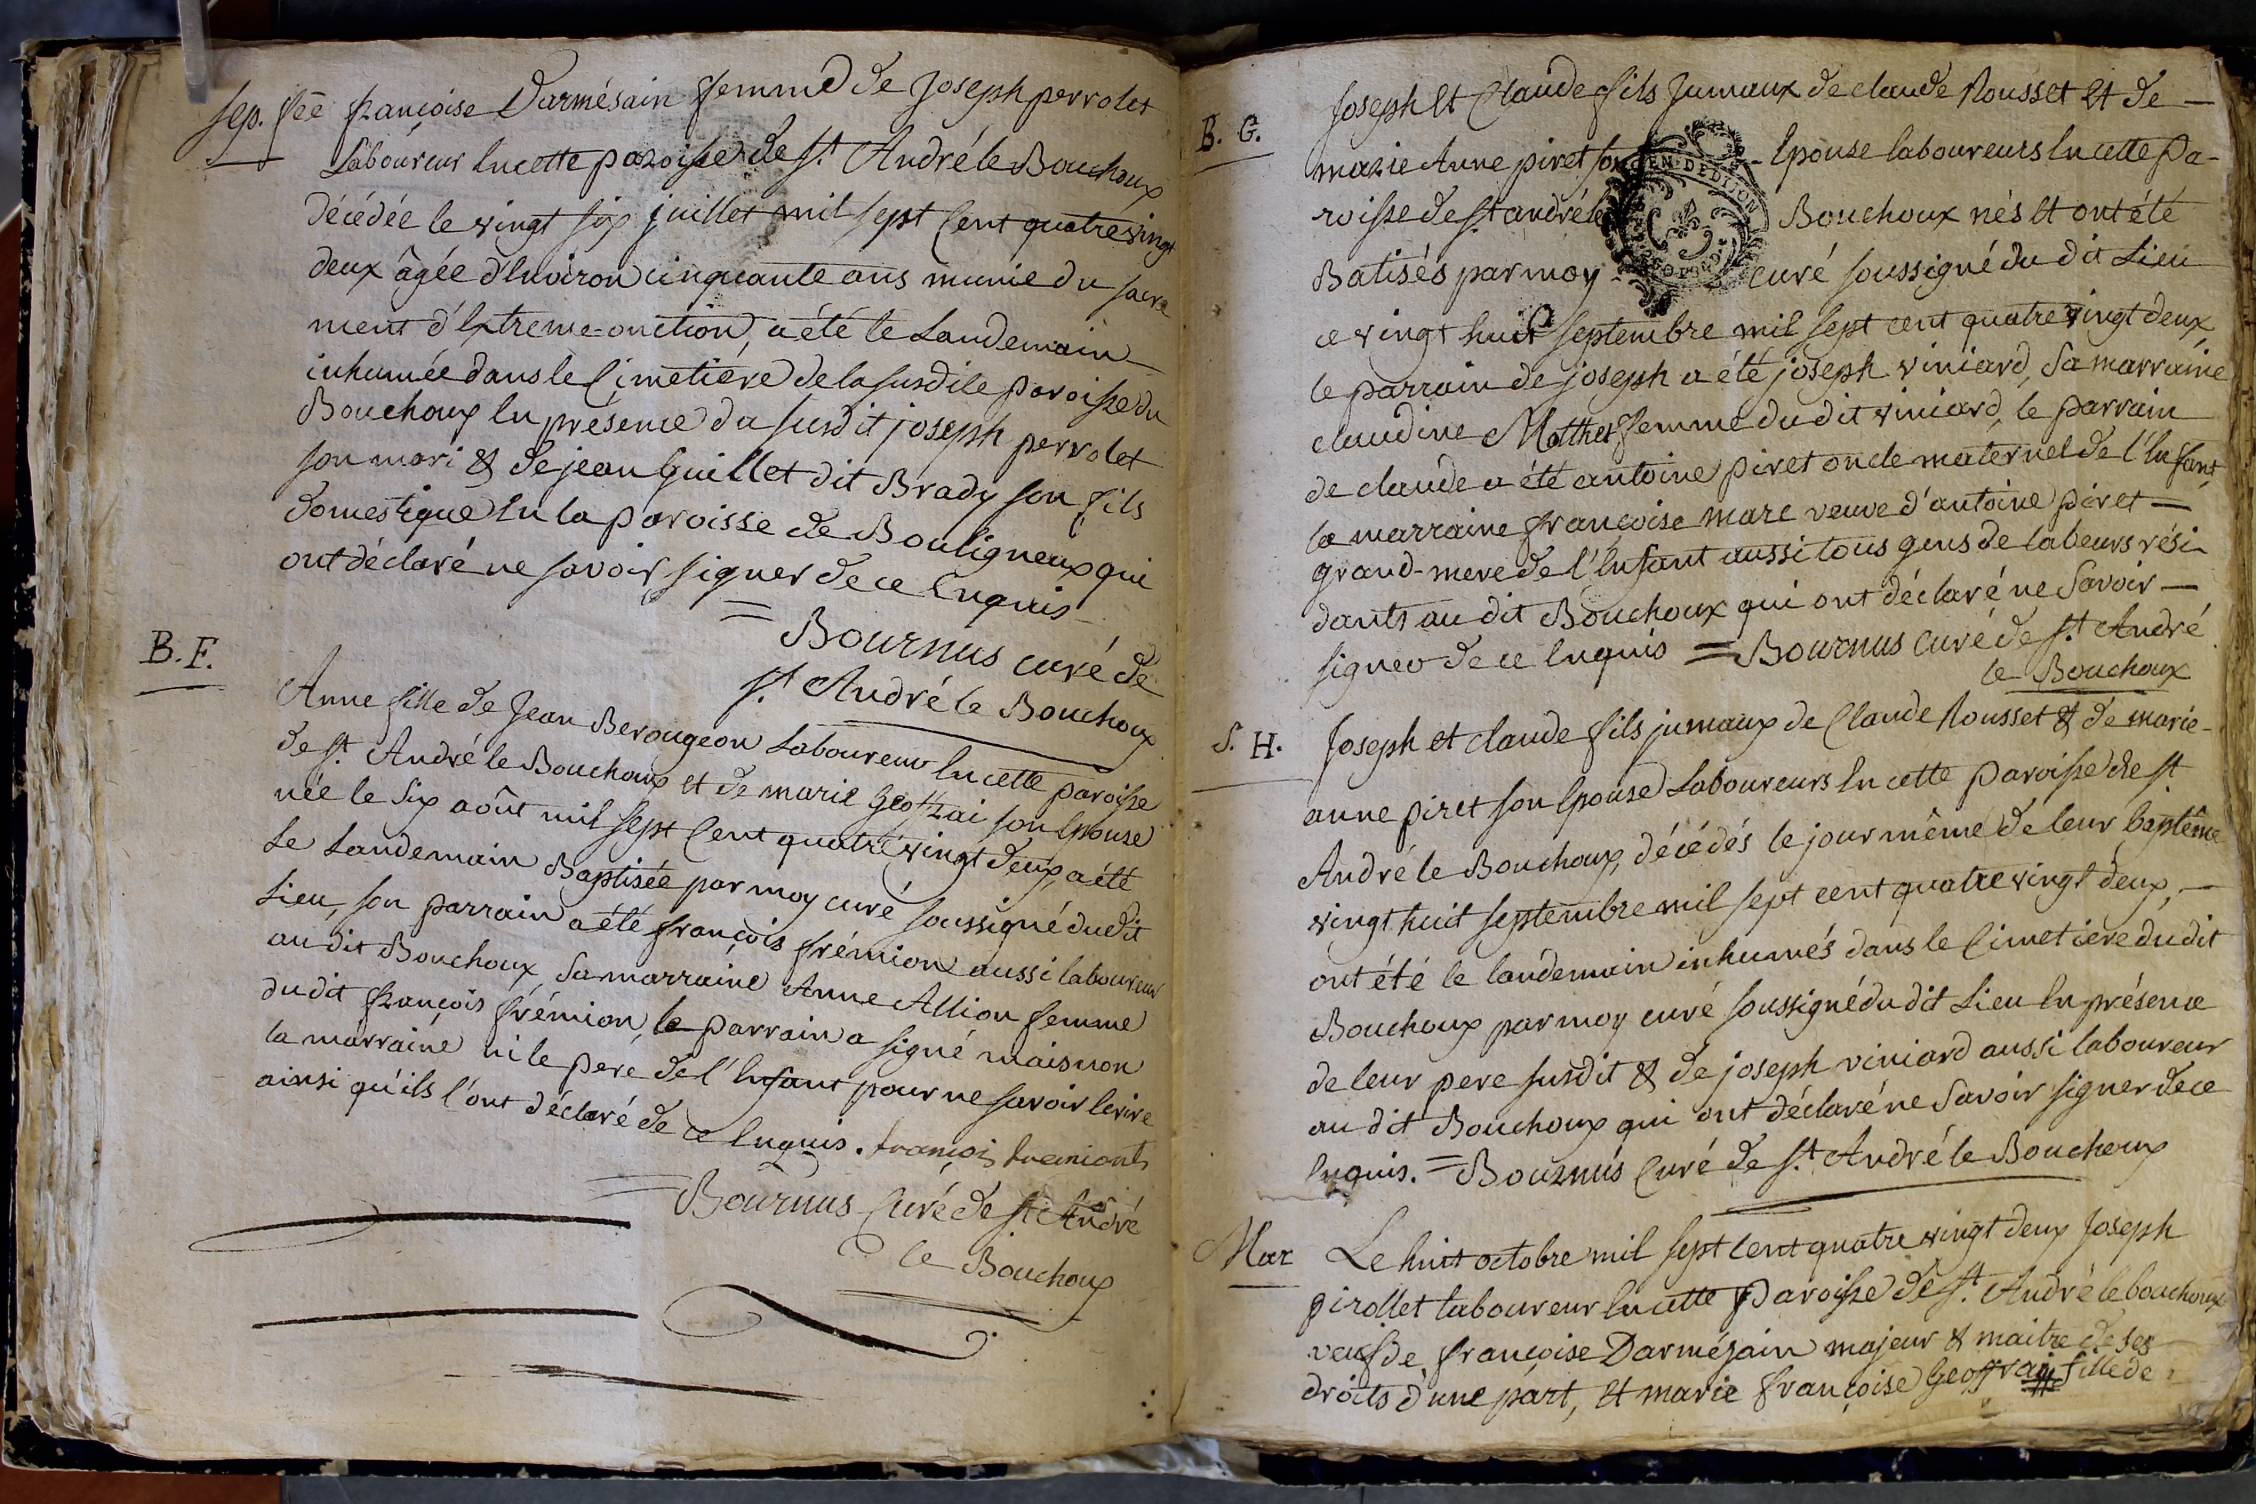 Sep. fée françoise Darmésain femme de Joseph perrolet
Laboureur En cette paroisse de St. André le Bouchoux
décédée le vingt six juillet mil sept Cent quatre vingt
deux âgée d'Environ cinquante ans munie du sacre
ment d'Extreme-onction, a été le Landemain
inhumée dans le Cimetiére de la susdite paroisse du
Bouchoux En présence du susdit joseph perrolet
son mari & de jean Guillet dit Brady son fils
domestique En la paroisse de Bouligneux qui
ont déclaré ne savoir signer de ce Enquis
= Bournus curé de
St. André le Bouchoux
B. F.
Anne fille de Jean Berougeon Laboureur En cette paroisse
de St. André le Bouchoux et de marie Geoffrai son Epouse
née le Six août mil sept Cent quatre vingt deux, a été
Le Landemain Baptisée par moy curé soussigné du dit
Lieu, son parrain a été françois frémion aussi laboureur
au dit Bouchoux, Sa marraine Anne Allion femme
du dit françois frémion, le parrain a signé mais non
la marraine ni le pere de l'Enfant pour ne savoir Ecrire
ainsi qu'ils l'ont déclaré de ce Enquis. françois
= Bournus Curé de St. André
le Bouchoux
B. G.
Joseph Et Claude fils Jumaux de claude Rousset Et de —
marie Anne piret son Epouse laboureurs En cette Pa-
roisse de St. andré le Bouchoux nés Et ont été
Batisés par moy curé soussigné du dit Lieu
ce vingt huit septembre mil sept cent quatre vingt deux,
le parrain de joseph a été joseph viniard, Sa marraine
claudine Mathet femme du dit viniard, le parrain
de claude a été antoine piret oncle maternel de l'Enfant,
la marraine françoise marc veuve d'antoine piret —
grand-mere de l'Enfant aussi tous gens de labeurs rési-
dants au dit Bouchoux qui ont déclaré ne Savoir —
signer de ce Enquis = Bournus curé de St. André
le Bouchoux
S. H.
Joseph et claude fils jumaux de Claude Rousset & de marie-
anne piret son Epouse Laboureurs En cette paroisse de St.
André le Bouchoux, décédés le jour même de leur baptême
vingt huit septembre mil sept cent quatre vingt deux, —
ont été le landemain inhumés dans le Cimetiere du dit
Bouchoux par moy curé soussigné du dit Lieu En présence
de leur pere susdit & de joseph viniard aussi laboureur
au dit Bouchoux qui ont déclaré ne Savoir signer de ce
Enquis. = Bournus Curé de St. André le Bouchoux
Mar Le huit octobre mil sept Cent quatre vingt deux Joseph
pirollet laboureur En cette Paroisse de St. André le bouchoux
veuf de françoise Darmésain majeur & maitre de ses
droits d'une part, Et marie françoise Geoffrai fille de